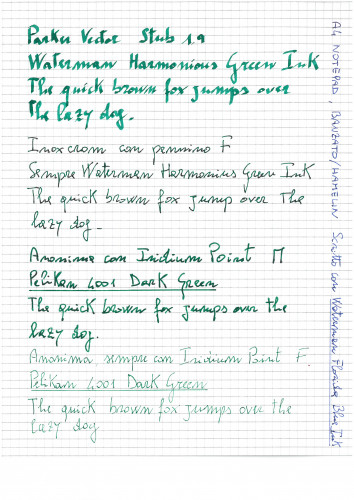 Parker Vector Stub 1.9
Waterman Harmonious Green Ink
The quick brown fox jumps over
the lazy dog.
Inoxcrom con pennino F
Sempre Waterman Harmonius Green Ink
The quick brown fox jump over the
lazy dog_
Anonima con Iridium Point M
Pelikan 4001 Dark Green
The quick brown fox jumps over the
lazy dog.
Anonima, sempre con Iridium Point F.
Pelikan 4001 Dark Green
The quick brown fox jumps over the
lazy dog
A4 NOTEPAD, /HAMELIN Scritto con Waterman Florida Blue Ink